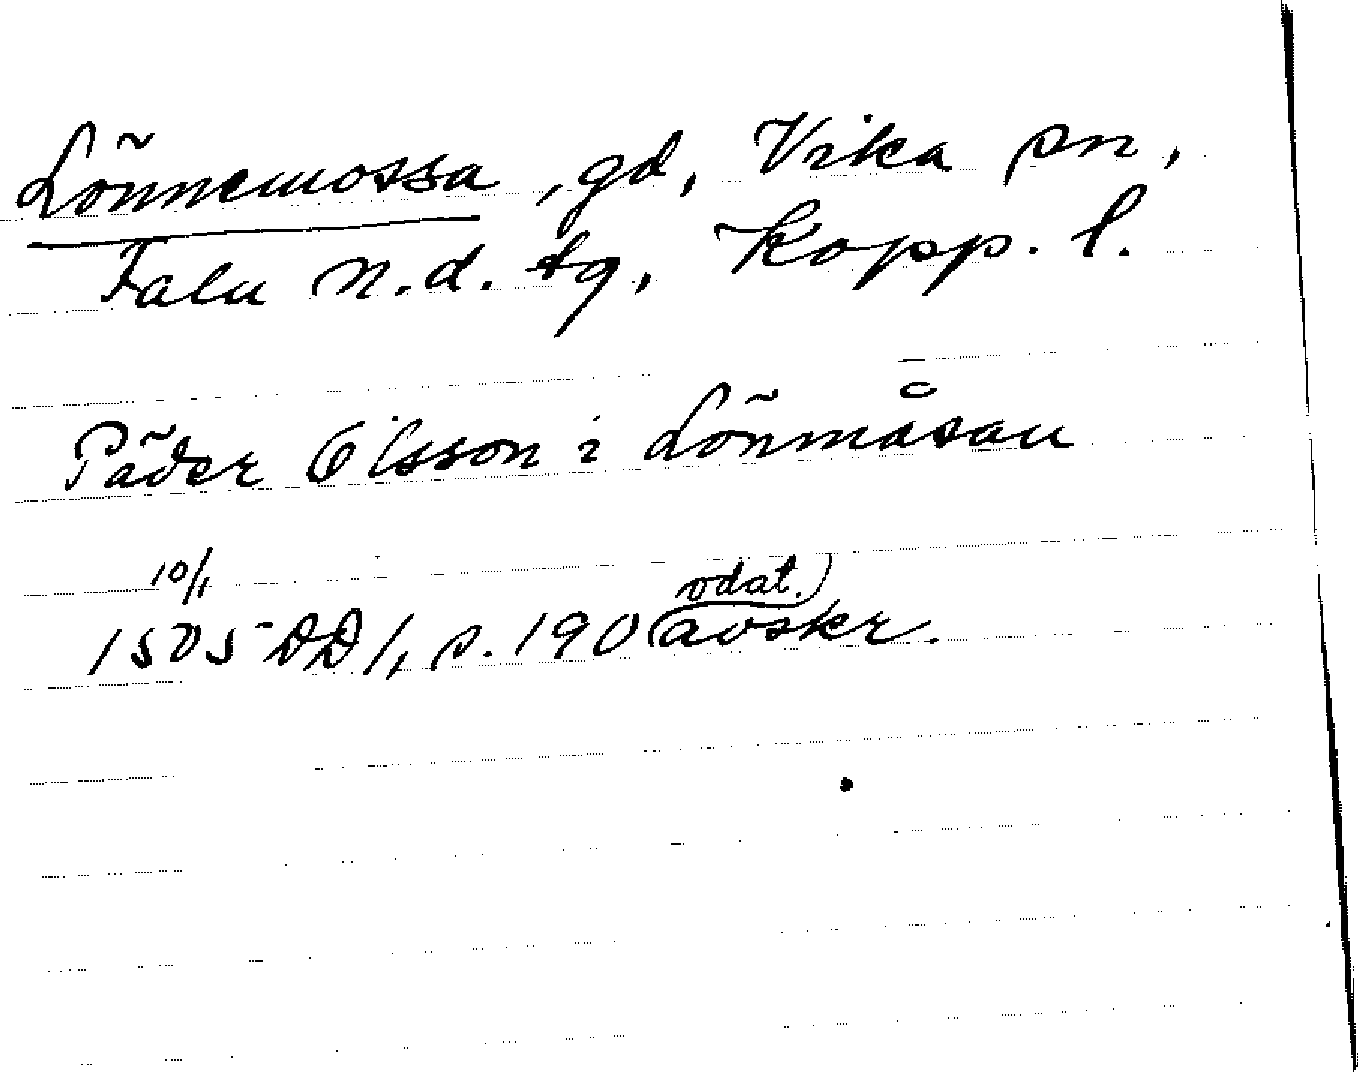 Lönnemossa, gd, Vika sn,
Falu n.d. tg, Kopp. l.
Päder Olsson i Lönmåsan
10/1
1505 DD 1, s. 190 (odat.) avskr.